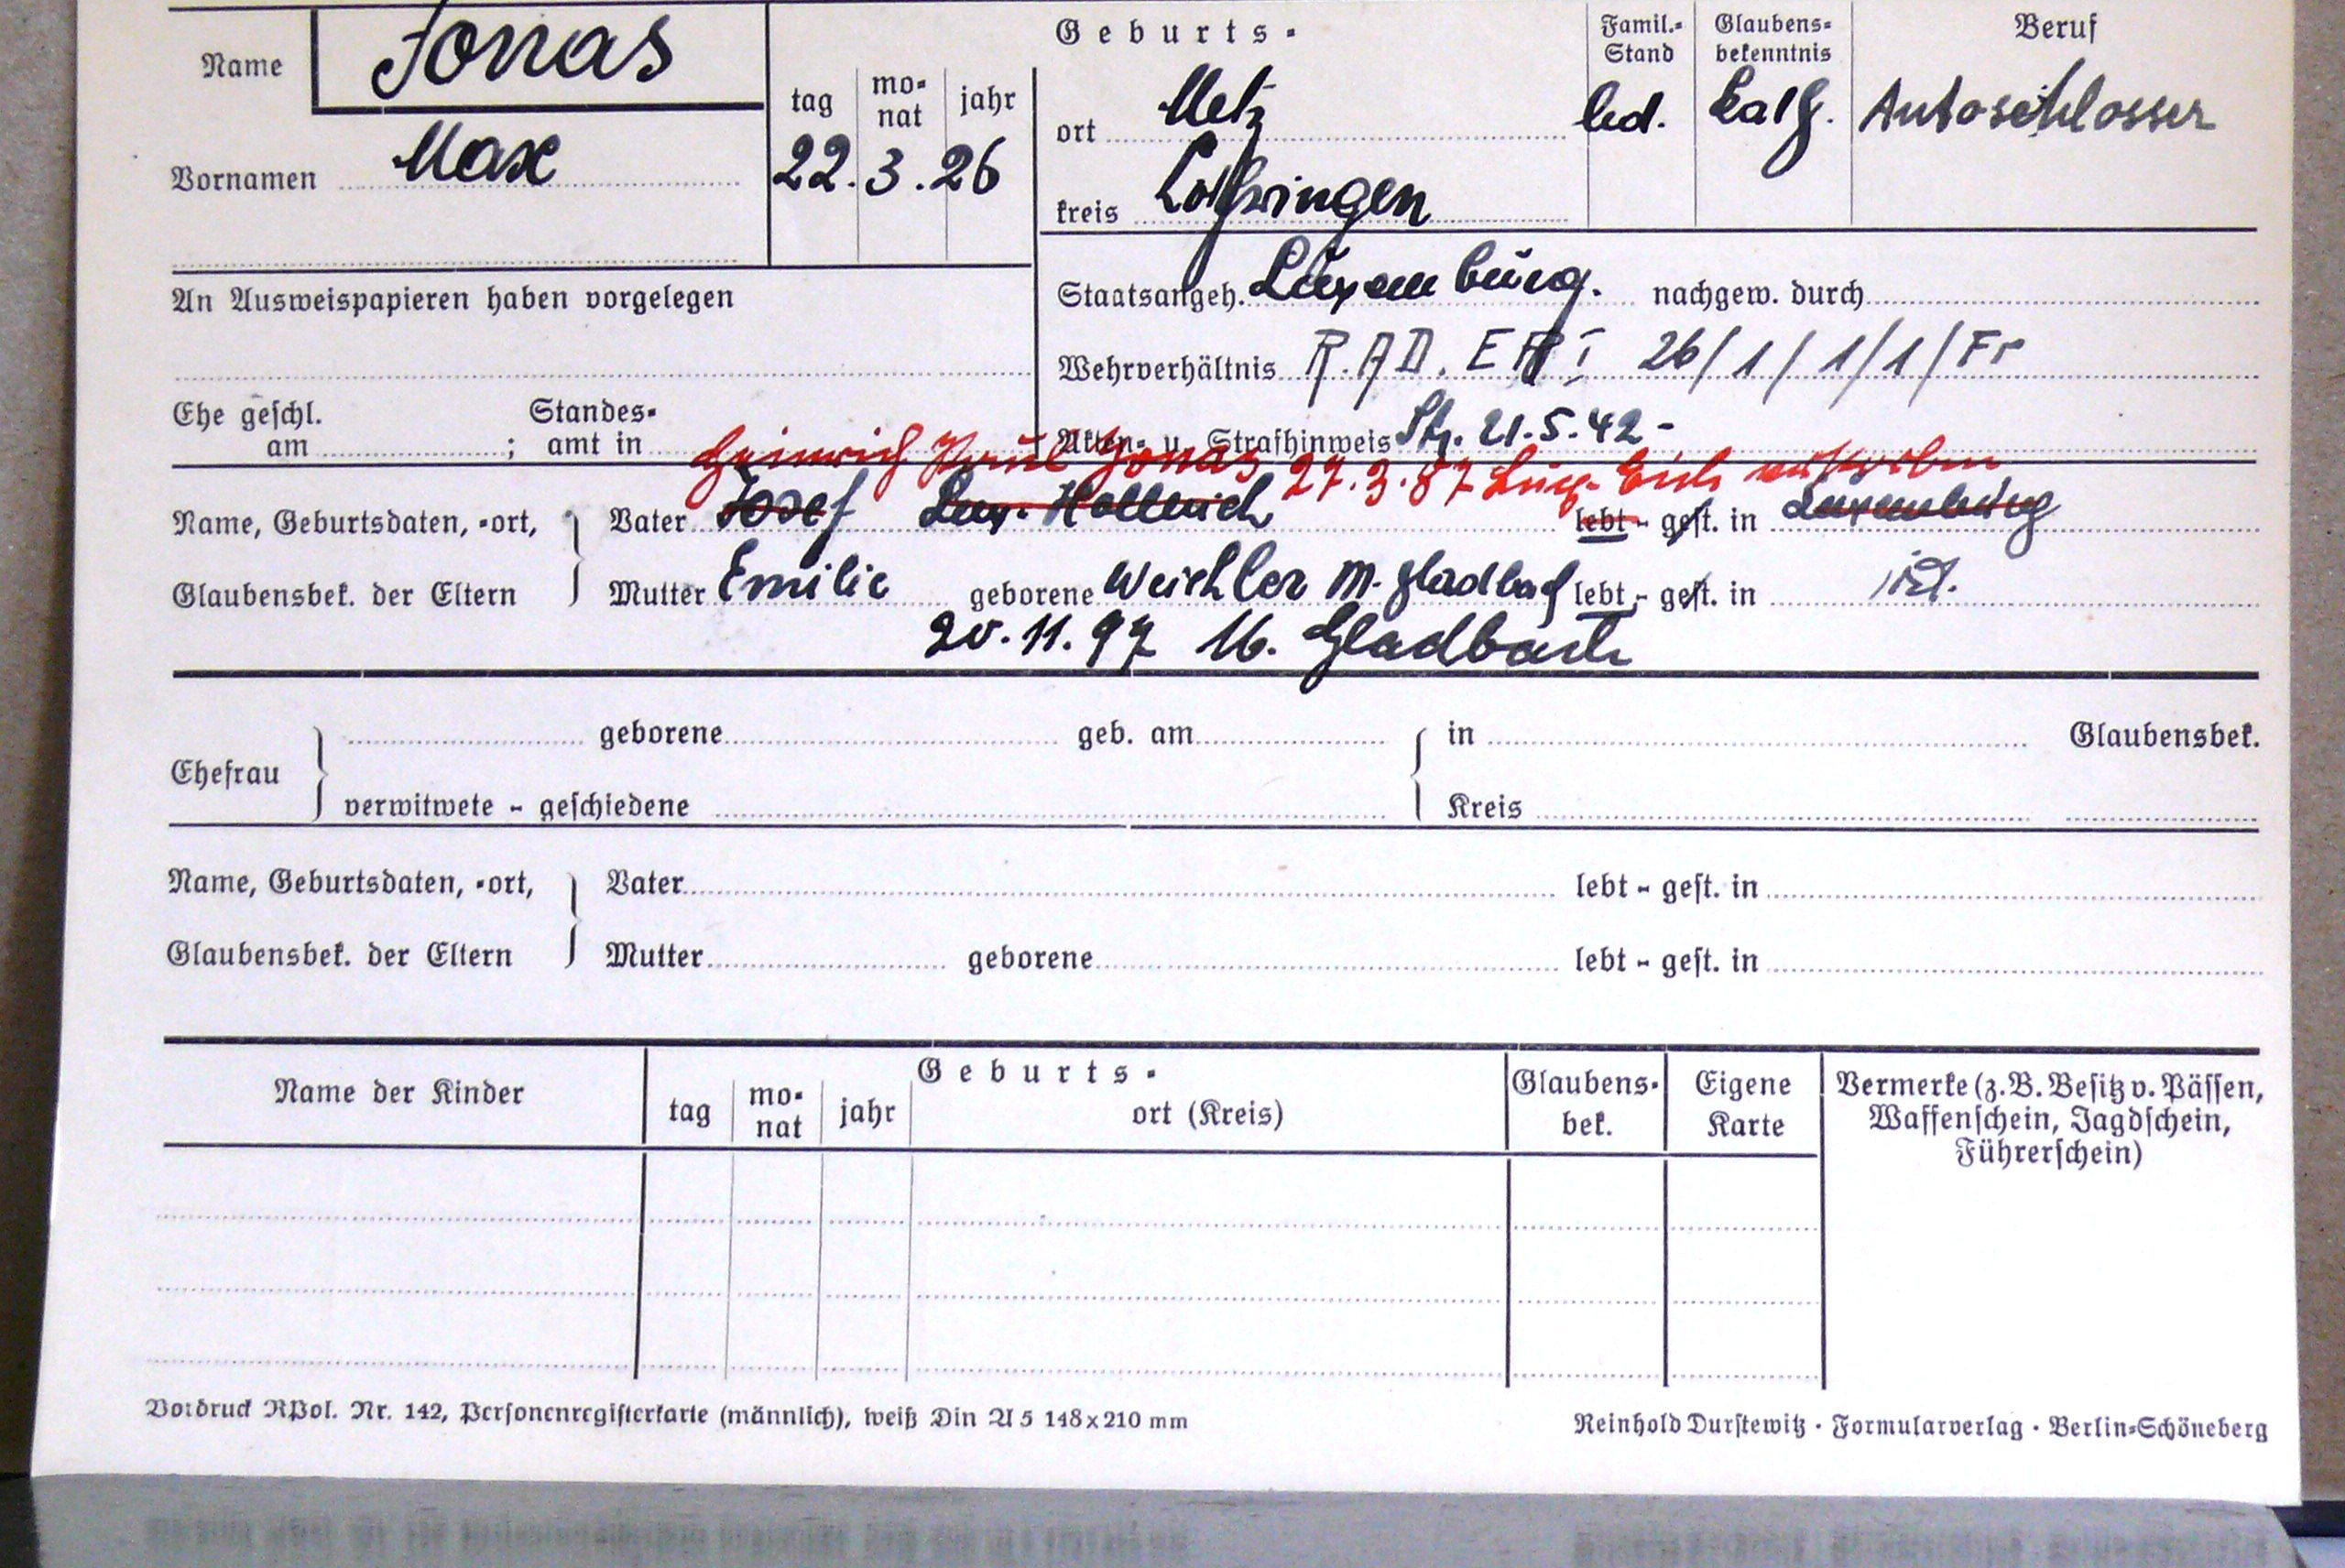 Name Jonas
Geburts-
Famil.-Stand
Glaubensbekenntnis
Beruf
tag monat jahr
Vornamen Max
22. 3. 26
ort Metz
led. kath. Autoschlosser
kreis Lothringen
An Ausweispapieren haben vorgelegen
Staatsangeh. Luxemburg. nachgew. durch
Wehrverhältnis R.A.D. ER I 26/1/1/1/Fr
Ehe geschl. am ; Standesamt in
Akten- u. Strafhinweis Stg. 21.5.42 -
Heinrich Paul Jonas 27.3.87 Lux.-Eich
Name, Geburtsdaten, -ort, Vater Josef Lux. Hollerich lebt - gest. in Luxemburg
Glaubensbek. der Eltern Mutter Emilie geborene Weichler M. Gladbach lebt - gest. in
20.11.97 M. Gladbach
Ehefrau geborene geb. am in Glaubensbek.
verwitwete - geschiedene Kreis
Name, Geburtsdaten, -ort, Vater lebt - gest. in
Glaubensbek. der Eltern Mutter geborene lebt - gest. in
Name der Kinder
Geburts-
tag monat jahr ort (Kreis)
Glaubensbek.
Eigene Karte
Vermerke (z. B. Besitz v. Pässen,
Waffenschein, Jagdschein,
Führerschein)
Vordruck RPol. Nr. 142, Personenregisterkarte (männlich), weiß Din A 5 148x210 mm
Reinhold Durstewitz · Formularverlag · Berlin-Schöneberg